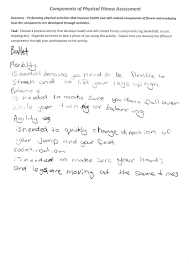 Components of Physical Fitness Assessment
Outcome - Performing physical activities that improve health and skill related components of fitness and analysing
how the components are developed through activities.
Task: Choose a physical activity that develops health and skill related fitness components (eg basketball, soccer,
stepping etc). Organise someone to take a photo of you doing this activity. Explain how you develop the different
components through your participation in this activity.
Ballet
Flexibility
is needed because you need to be flexible to
strech and to lift your legs up high
Balance
is needed to make sure you dont fall over
while your turning or balancing
Agility
is needed to quickly change direction of
your jump and your feet
coordination
is needed to make sure your hands
and legs are moving at the same time